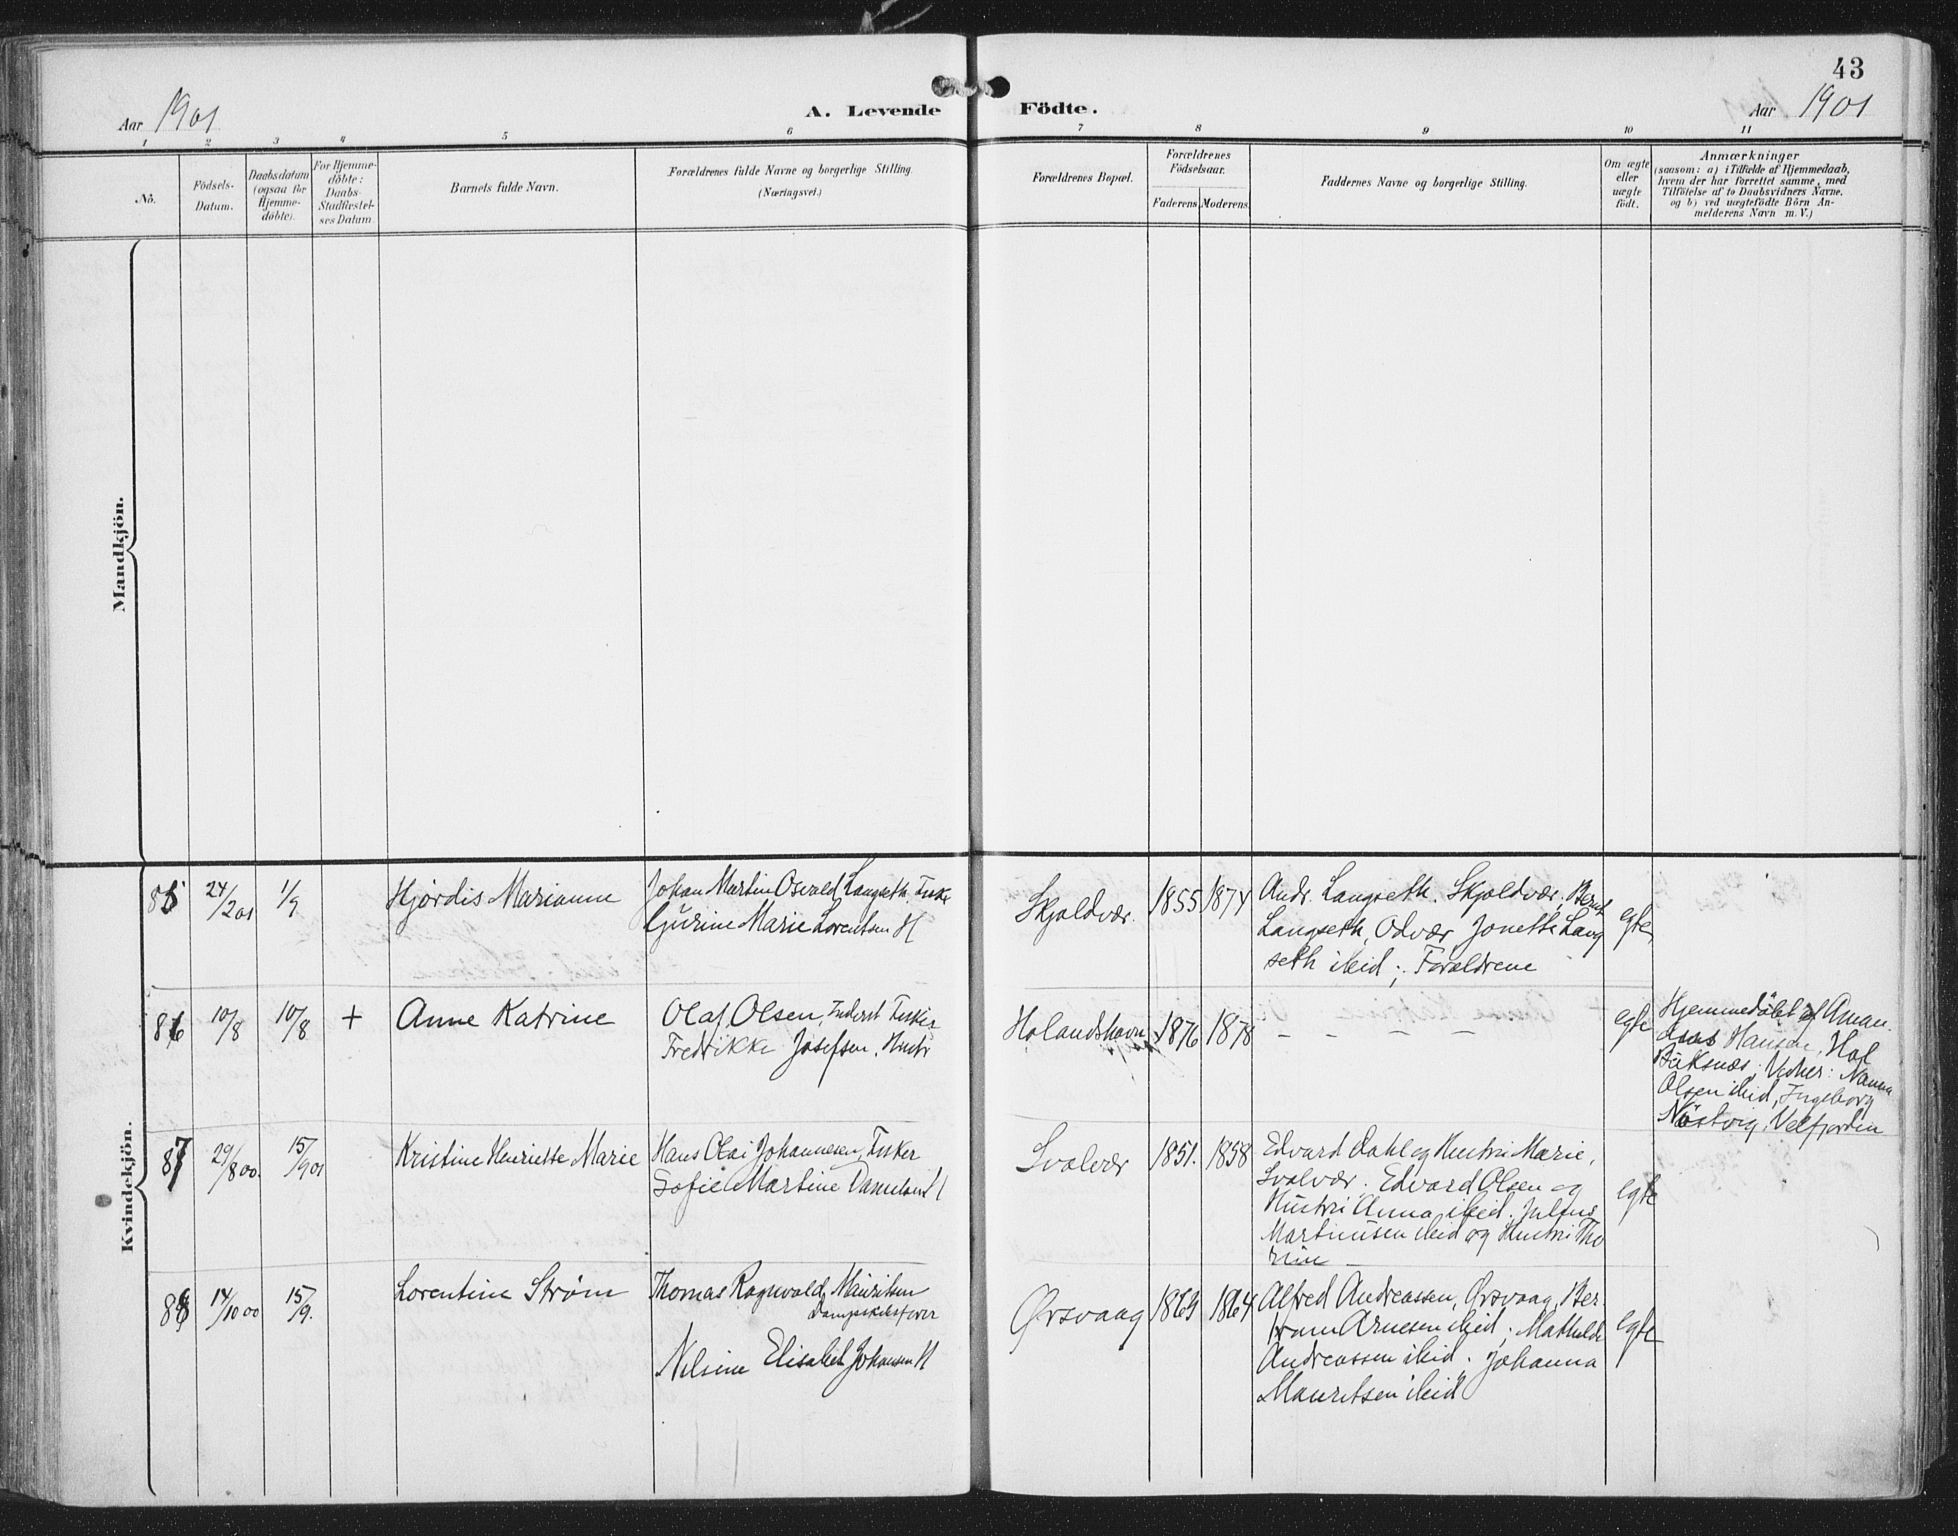 43
Aar 1901
A. Levende Födte.
Aar 1901
1 2 3 4 5 6 7 8 9 10 11
No.
Födsels-
Datum.
Daabsdatum
(ogsaa for
Hjemme-
döbte).
For Hjemme-
döbte:
Daabs-
Stadfæstel-
ses Datum.
Barnets fulde Navn.
Forældrenes fulde Navne og borgerlige Stilling.
(Næringsvei.)
Forældrenes Bopæl.
Forældrenes
Födselsaar.
Faderens. Moderens.
Faddernes Navne og borgerlige Stilling.
Om ægte
eller
uægte
födt.
Anmærkninger
(saasom: a) i Tilfælde af Hjemmedaab,
hvem der har forrettet samme, med
Tilföielse af to Daabsvidners Navne,
og b) ved uægtefödte Börn An-
melderens Navn m. V.)
Mandkjön.
Kvindekjön.
85 24/2 01 1/9
Hjørdis Marianne
Johan Martin Osvald Langseth. Fisker
Gjurine Marie Lorentsen H
Skjoldvær.
1855 1874
Andr. Langseth. Skjoldvær; Bernt
Langseth, Odvær, Jonette Lang
seth ibid; Forældrene
egte
86 10/8 10/8 +
Anne Katrine
Olaf Olsen, Inderst Fisker
Fredrikke Josefsen. Hustr
Holandshavn
1876 1878
– –
egte
Hjemmedöbt af Aman
Hansen, Hol
Olsen ibid, Ingeborg
Velfjorden
87 29/8 00. 15/9 01
Kristine Henriette Marie
Hans Olai Johannesen, Fisker
Sofie Martine Danielsen H
Svolvær
1851. 1858
Edvard Dahl og Hustru Marie,
Svolvær. Edvard Olsen og
Hustru Anna ibid. Julius
Martinusen ibid og Hustru Tho
rine –
egte
88 14/10 00 15/9.
Lorentine Strøm
Thomas Ragnvald Mauritsen
Dampskibsfører
Nilsine Elisabet Johansen H
Ørsvaag
1863 1864
Alfred Andreassen, Ørsvaag, Ber
tram Arnesen ibid; Mathilde
Andreassen ibid. Johanna
Mauritsen ibid
egte